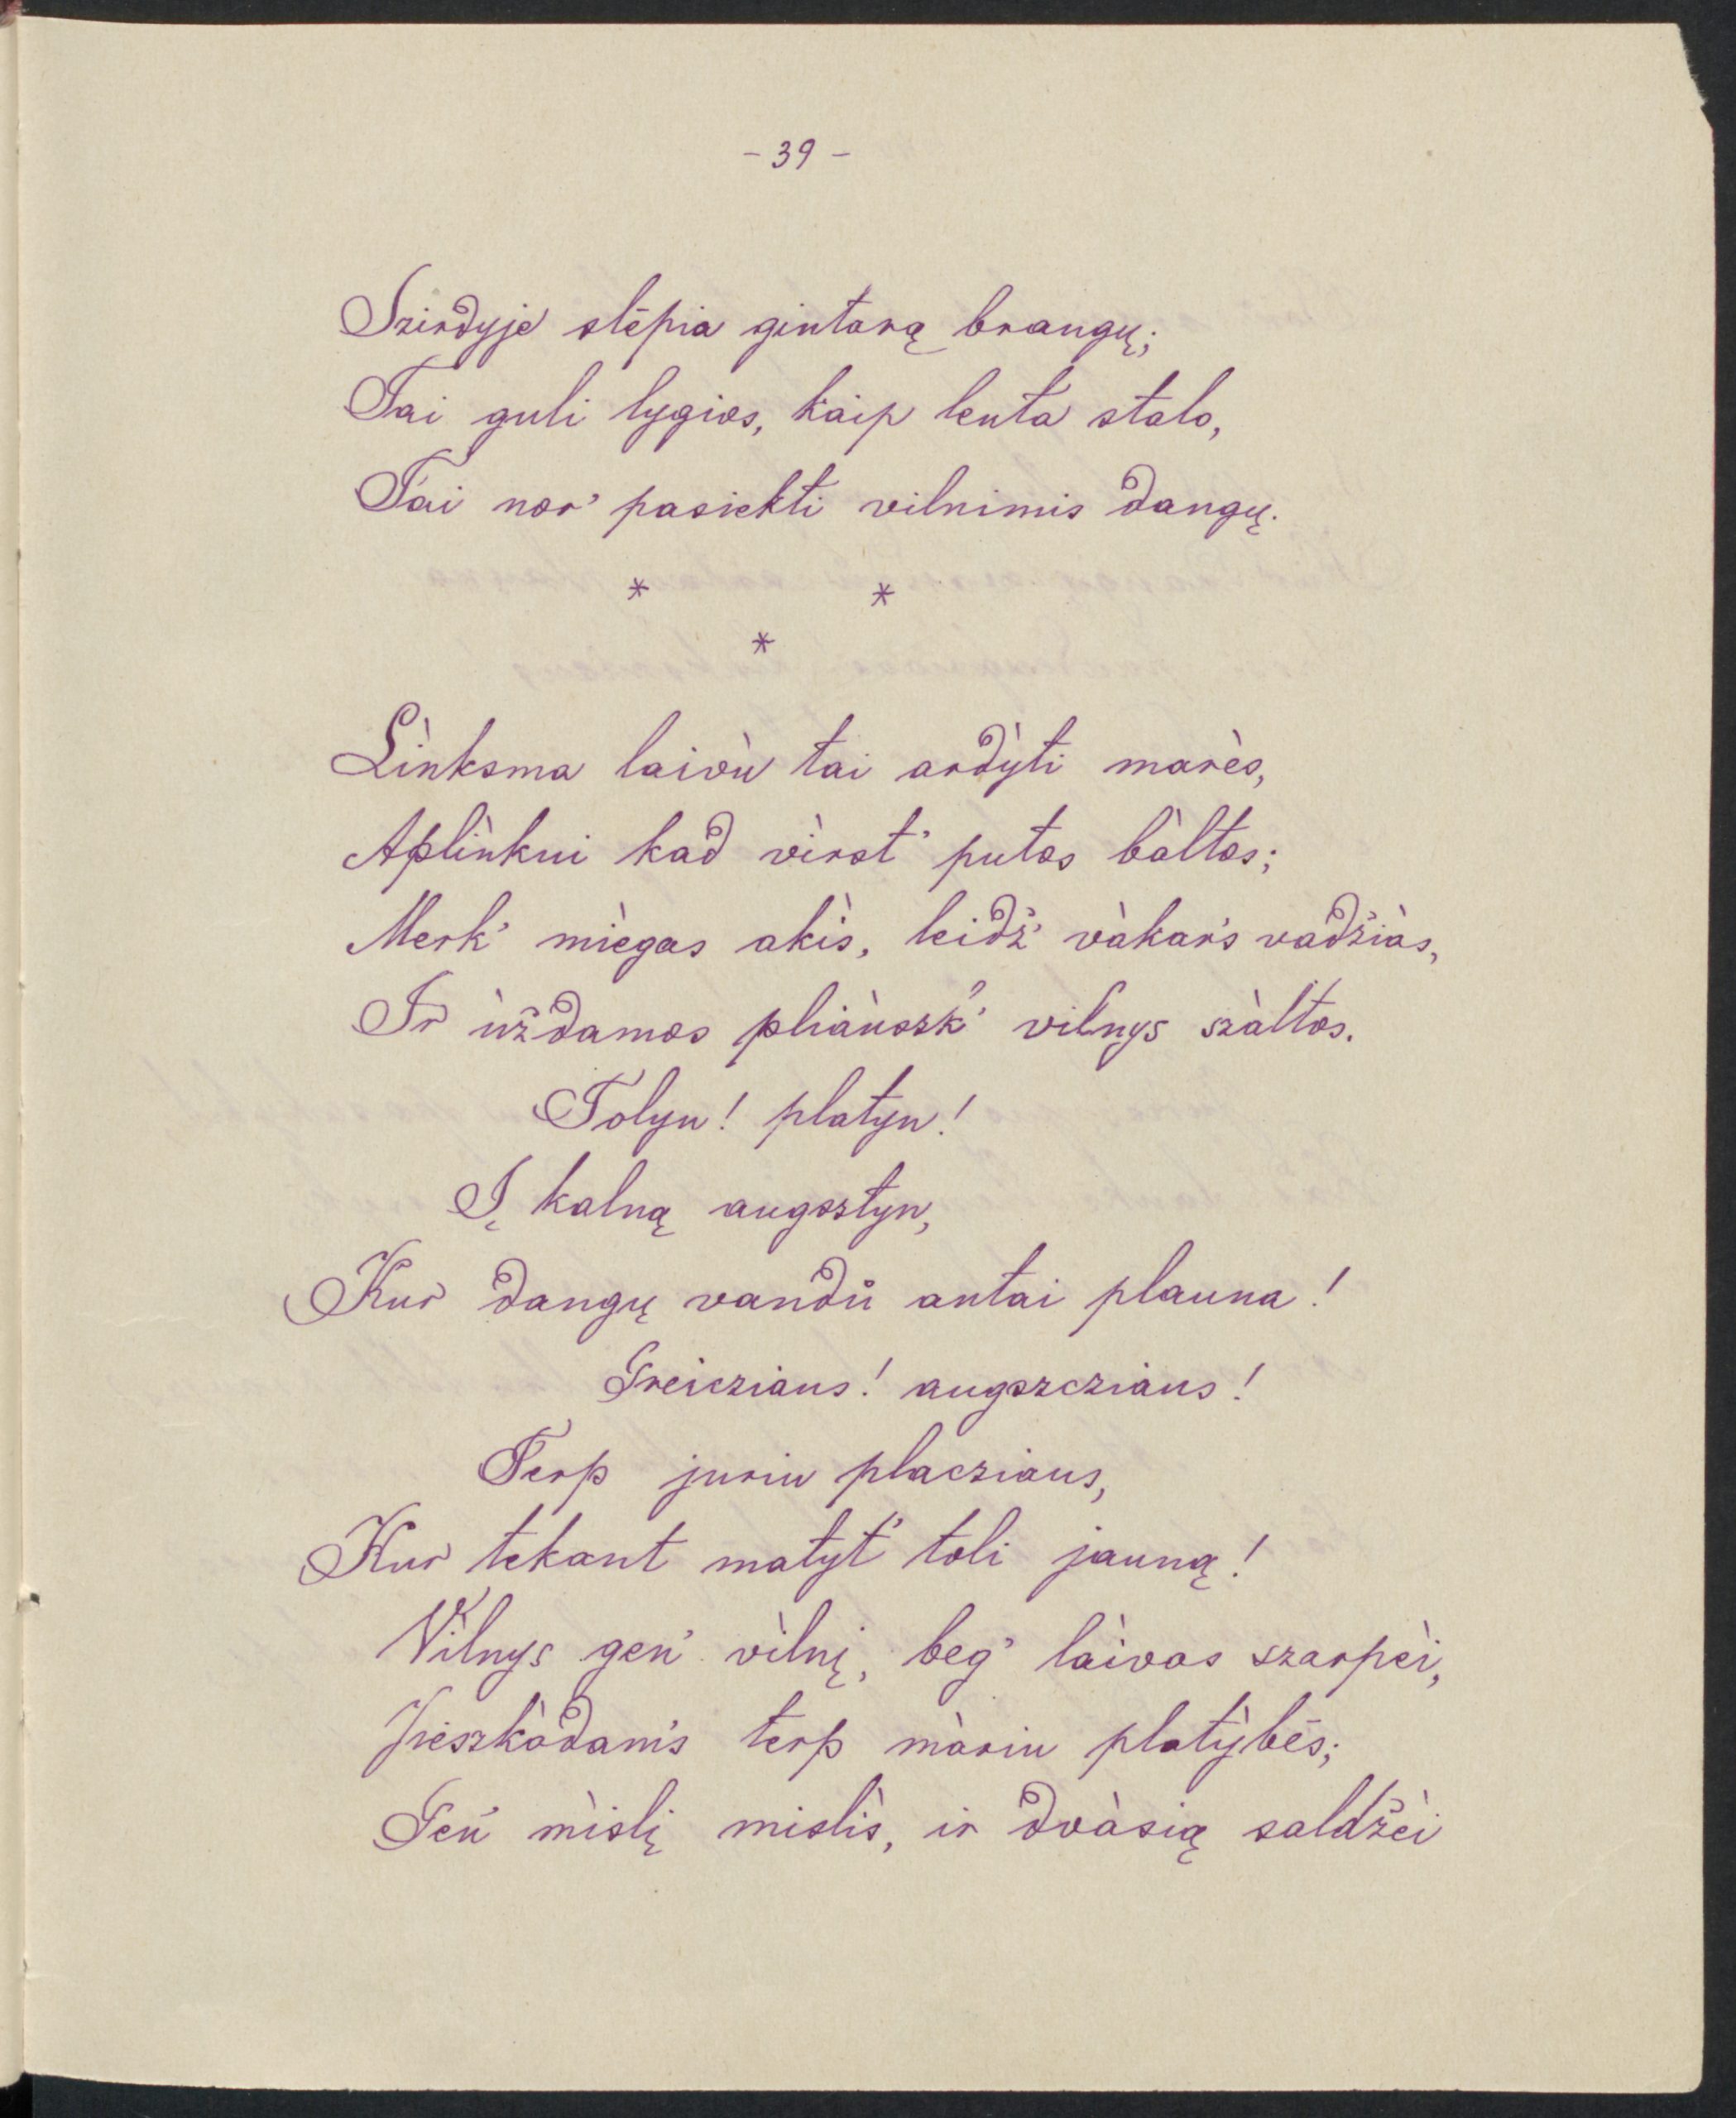 - 39 -
Szirdyje slēpia gintarą brangų;
Tai guli lygios, kaip lenta stalo,
Tai nor' pasiekti vilnimis dangų.
* *
*
Lìnksma laivù tai ardýti marès,
Aplìnkui kad vìrst' putos bàltos;
Merk' mìegas akìs, leidž' vàkar's vadžiàs,
Ir ùždamos pliàuszk' vilnys szàltos.
Tolyn! platyn!
Į kalną augsztyn,
Kur dangų vandů antai plauna!
Greicziaus! augszcziaus!
Terp juriu placziaus,
Kur tekant matyt' toli jauną!
Vìlnys gen' vìlnį, beg' làivas szarpèi,
Jieszkòdam's terp màriu platỳbēs;
Gen' mìslį mislìs, ir dvàsią saldžèi